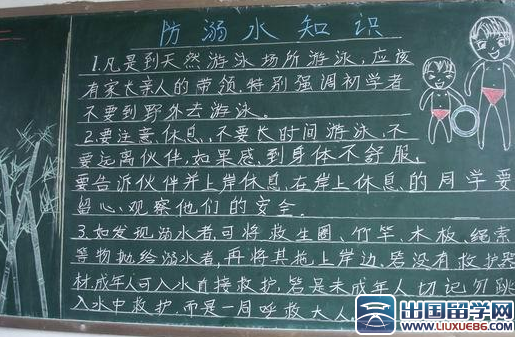 防溺水知识
1.凡是到天然游泳场所游泳,应该
有家长亲人的带领,特别强调初学者
不要到野外去游泳。
2.要注意休息,不要长时间游泳,不
要远离伙伴,如果感到身体不舒服,
要告诉伙伴并上岸休息,在岸上休息的同学要
留心、观察他们的安全。
3.如发现溺水者,可将救生圈、竹竿、木板、绳索
等物抛给溺水者,再将其拖上岸边,若没有救护器
材,成年人可入水直接救护,若是未成年人切记勿跳
入水中救护,而是一同呼救大人
出国留学网
www.liuxue86.com